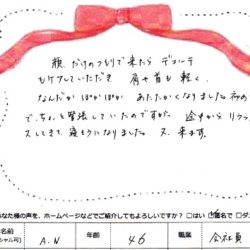 顔だけのつもりで来たら デコルテ
もケアしていただき 肩や首も 軽く、
なんだか ぽかぽか あたたかくなりました。初め
で、ちょっと緊張していたのですが、途中からリラッ
スしてきて、寝そうになりました 又、来ます。
なた様の声を、ホームページなどでご紹介してもよろしいですか? □はい ☑匿名で □ダ
名前 A.N 年齢 46 職業 会社員
シャル可)